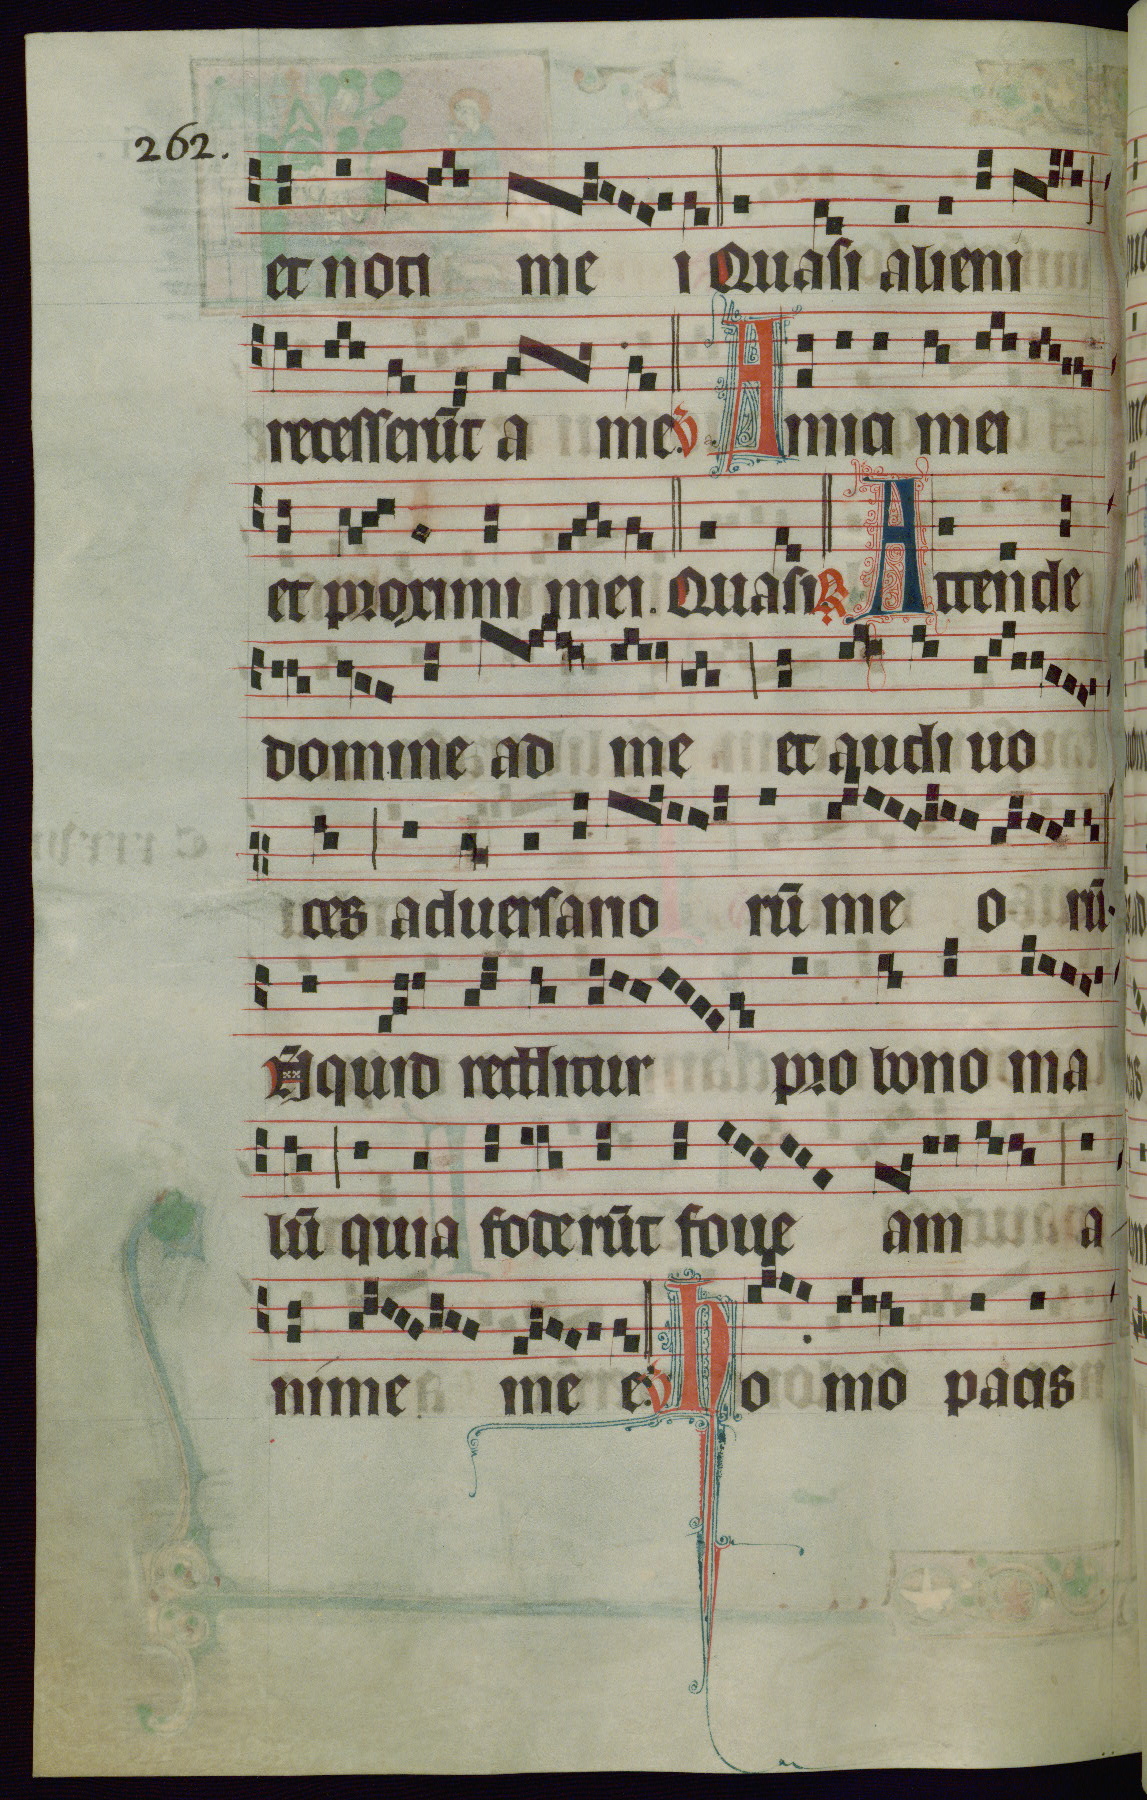 262.
et noti me i Quasi alieni
recesserūt a me. V Amici mei
et proximi mei. Quasi R Attende
domine ad me et audi uo
ces aduersario rū me o rū.
Nūquid redditur pro bono ma
lū quia foderūt foue am a
nime me e. V Homo pacis